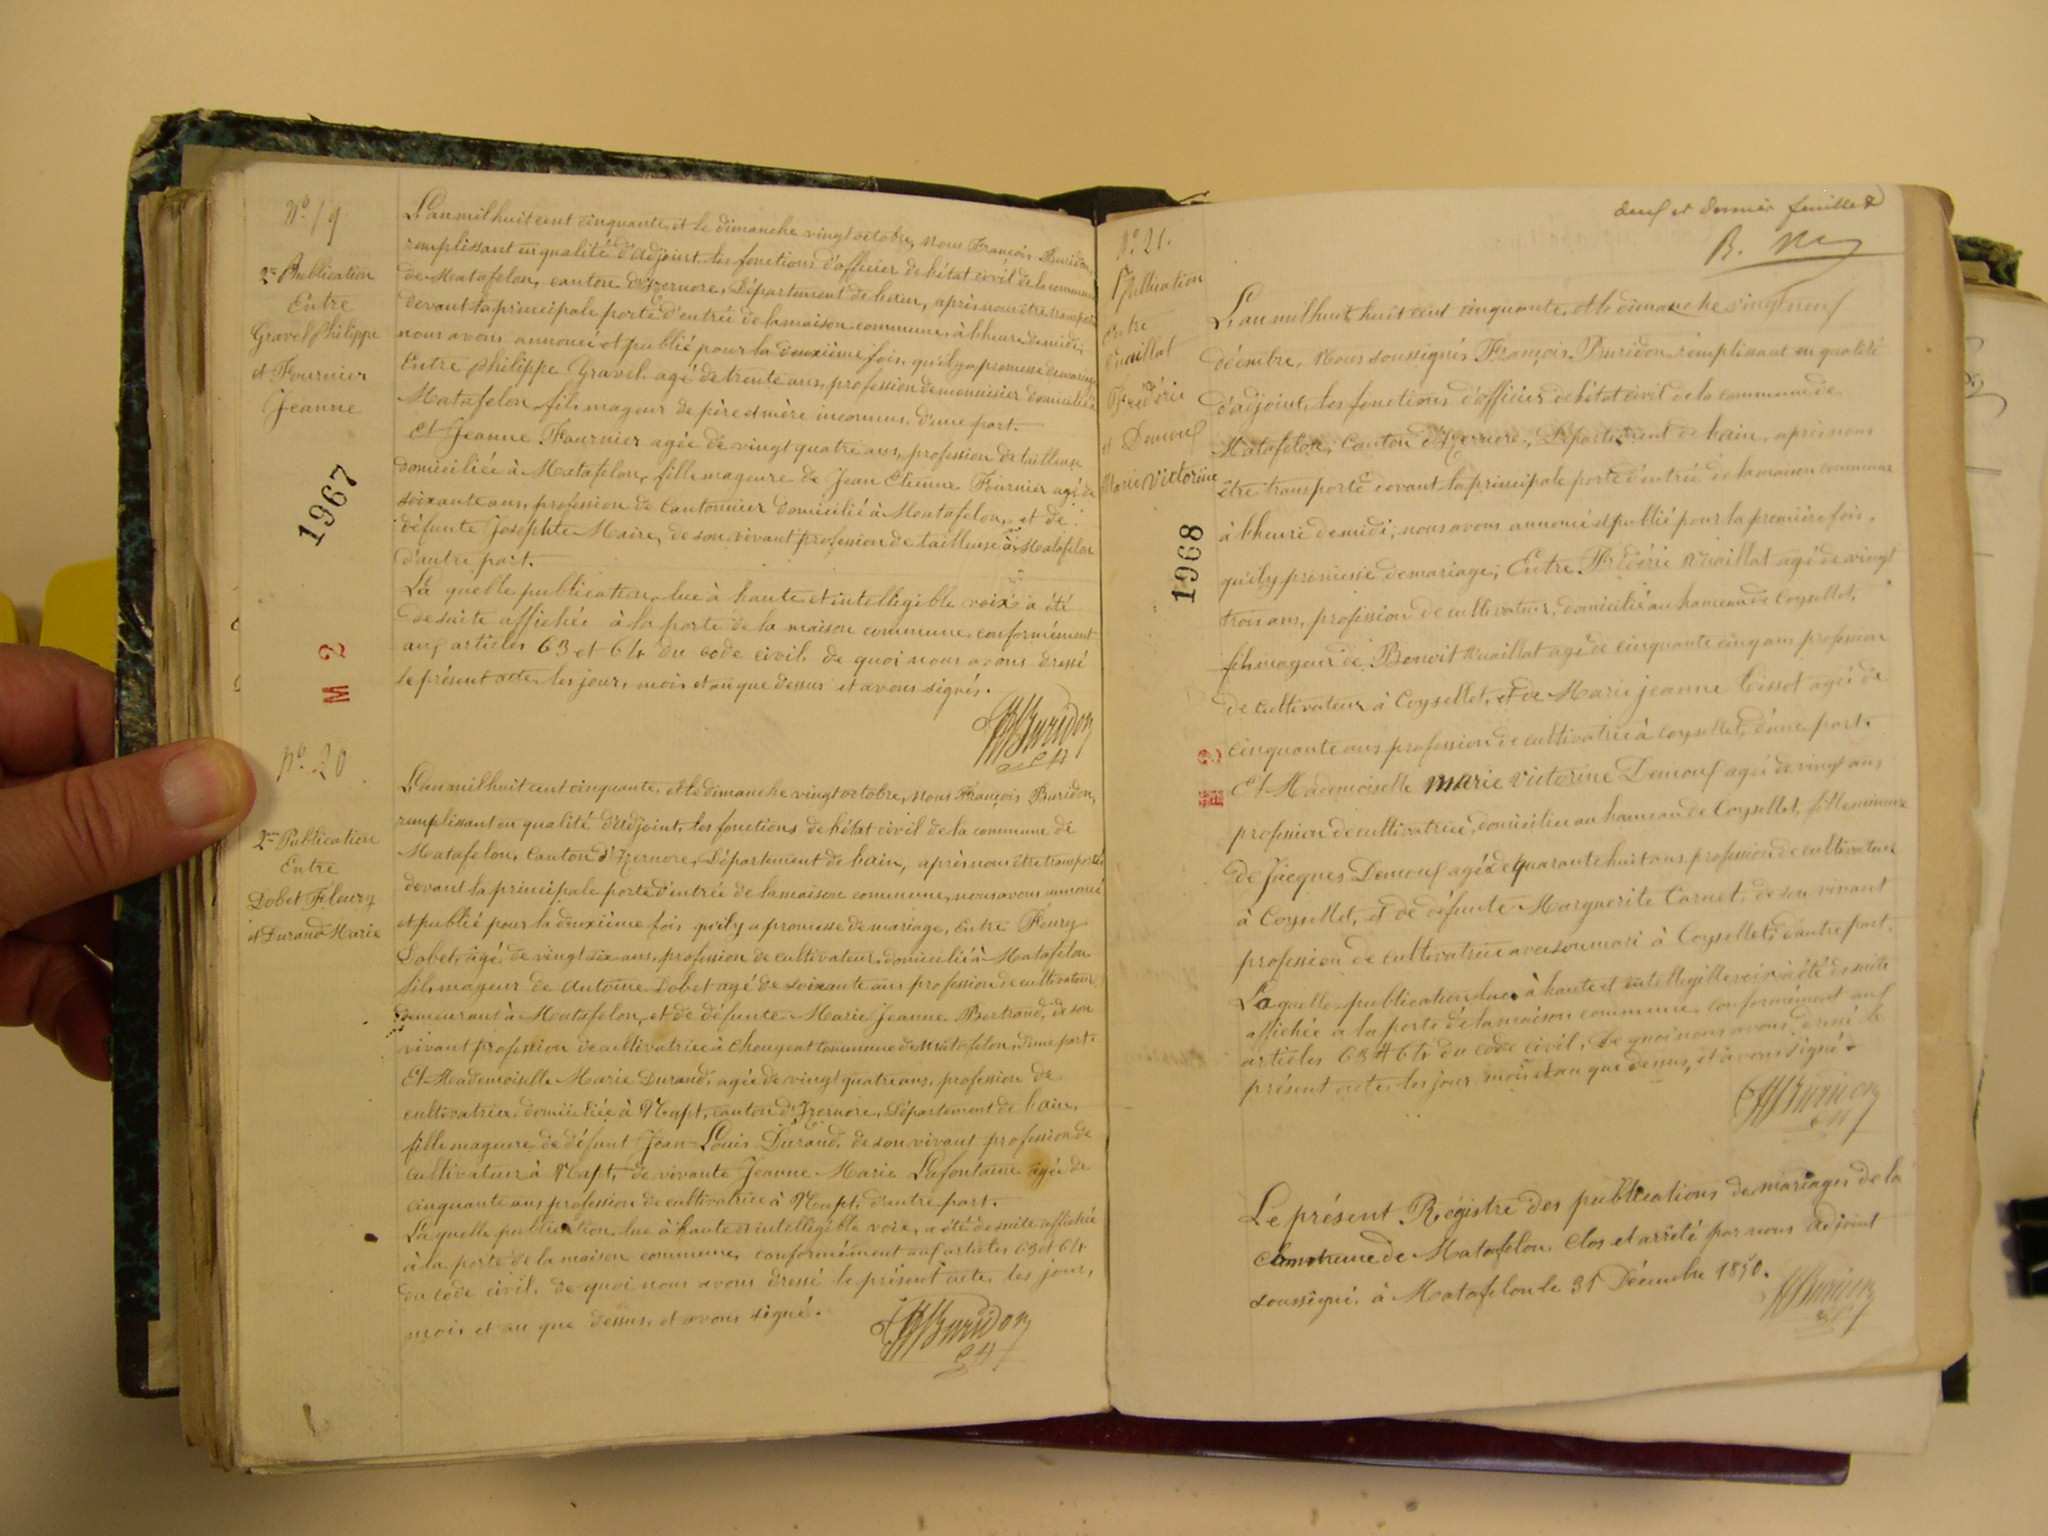 N° 19
2me Publication
Entre
Gravel Philippe
et Fournier
Jeanne
1967
M 2
L'an mil huit cent cinquante, et le dimanche vingt octobre, Nous François Buridon,
remplissant en qualité d'adjoint les fonctions d'officier de l'état civil de la commune
de Matafelon, canton d'Izernore, Département de l'ain, après nous être transporté
devant la principale porte d'entrée de la maison commune, à l'heure de midi,
nous avons annoncé et publié pour la deuxième fois, qu'il y a promesse de mariage
Entre Philippe Gravel agé de trente ans, profession de menuisier domicilié à
Matafelon fils mageur de père et mère inconnus. d'une part.
Et Jeanne Fournier agée de vingt quatre ans, profession de tailleuse
domiciliée à Matafelon, fille mageure de Jean Etienne Fournier agé de
soixante ans, profession de Cantonnier domicilié à Matafelon, et de
défunte Josephte Maire, de son vivant profession de tailleuse à Matafelon
d'autre part.
La quelle publication, lue à haute et intellegible voix a été
de suite affichée à la porte de la maison commune, conformément
aux articles 63 et 64 du code civil, de quoi nous avons dressé
le présent acte, les jour, mois et an que dessus et avons signés.
Buridon
adj
N° 20
2me Publication
Entre
Dobet Fleury
et Durand Marie
L'an mil huit cent cinquante, et le dimanche vingt octobre, Nous François Buridon,
remplissant en qualité d'adjoint, les fonctions de l'état civil de la commune de
Matafelon, Canton d'Izernore, Département de l'ain, après nous être transporté
devant la principale porte d'entrée de la maison commune, nous avons annoncé
et publié pour la deuxième fois qu'il y a promesse de mariage, Entre Fleury
Dobet, agé de vingt six ans, profession de cultivateur, domicilié à Matafelon
fils mageur de Antoine Dobet agé de soixante ans profession de cultivateur
demeurant à Matafelon, et de défunte Marie Jeanne Bertrand, de son
vivant profession de cultivatrice à Chougeat commune de Matafelon, d'une part.
Et Mademoiselle Marie Durand, agée de vingt quatre ans, profession de
cultivatrice, domiciliée à Napt, canton d'Izernore, Département de l'ain,
fille mageure de défunt Jean-Louis Durand, de son vivant profession de
cultivateur à Napt, de vivante Jeanne Marie Lafontaine agée de
cinquante ans profession de cultivatrice à Napt, d'autre part.
La quelle publication, lue à haute et intellegible voix, a été de suite affichée
à la porte de la maison commune, conformément aux articles 63 et 64
du code civil, de quoi nous avons dressé le présent acte, les jour,
mois et an que dessus et avons signé.
Buridon
adj
neuf et dernier feuillet
N° 21.
Publication
Entre
Vuaillat
Frédéric
et Demouf
Marie Victorine
1968
L'an mil huit huit cent cinquante, et le dimanche vingt neuf
décembre, Nous soussignés François Buridon remplissant en qualité
d'adjoint, les fonctions d'officier de l'état civil de la commune de
Matafelon, Canton d'Izernore, Département de l'ain, après nous
être transporté devant la principale porte d'entrée de la maison commune
à l'heure de midi, nous avons annoncé et publié pour la première fois,
qu'il y promesse de mariage, Entre Frédéric Vuaillat agé de vingt
trois ans, profession de cultivateur, domicilié au hameau de Coysellet,
fils mageur de Benoit Vuaillat agé de cinquante cinq ans profession
de cultivateur à Coysellet, et de Marie jeanne Tissot agée de
cinquante ans profession de cultivatrice à coysellet, d'une part.
Et Mademoiselle Marie Victorine Demouf agée de vingt ans
profession de cultivatrice, domiciliée au hameau de Coysellet, fille mineure
de Jacques Demouf agé de quarante huit ans profession de cultivateur
à Coysellet, et de défunte Marguerite Carnet, de son vivant
profession de cultivatrice avec son mari à Coysellet, d'autre part.
Laquelle publication, lue à haute et intellegible voix à été de suite
affichée a la porte de la maison commune conformément aux
articles 63 et 64 du code civil, de quoi nous avons dressé le
présent acte, les jour, mois et an que dessus, et avons signé.
Buridon
adj
Le présent Régistre des publications de mariages de la
Commune de Matafelon, Clos et arrêté par nous adjoint
soussigné, à Matafelon le 31 Décembre 1850.
Buridon
adj